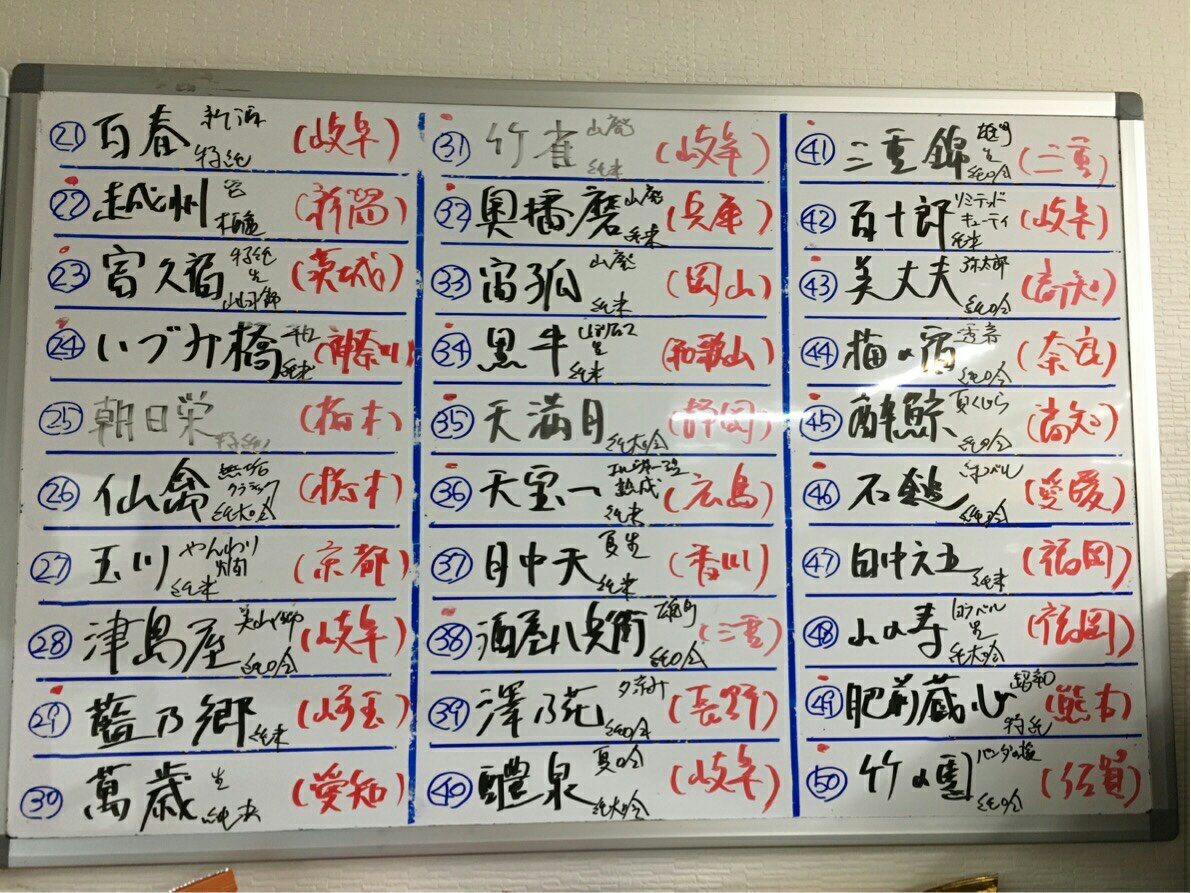 ㉑ 百春 特純 (岐阜)
㉒ 越州 (新潟)
㉓ 富久福 特純 生 山田錦 (茨城)
㉔ いづみ橋 純米 (神奈川)
㉕ 朝日栄 特純 (栃木)
㉖ 仙禽 無垢 クラシック 純大吟 (栃木)
㉗ 玉川 やんわり 燗 純米 (京都)
㉘ 津島屋 美山錦 純吟 (岐阜)
㉙ 藍乃郷 純米 (埼玉)
㉚ 萬歳 生 純米 (愛知)
㉛ 竹雀 山廃 純米 (岐阜)
㉜ 奥播磨 山廃 純米 (兵庫)
㉝ 宙狐 山廃 純米 (岡山)
㉞ 黒牛 生 純米 (和歌山)
㉟ 天満月 純大吟 (静岡)
㊱ 天宝一 熟成 純米 (広島)
㊲ 月中天 夏生 純米 (香川)
㊳ 酒屋八兵衛 雄町 純吟 (三重)
㊴ 澤乃花 夕涼み 純吟 (長野)
㊵ 醴泉 夏吟 純大吟 (岐阜)
㊶ 三重錦 雄町 生 純吟 (三重)
㊷ 百十郎 リミテッド キューティ 純米 (岐阜)
㊸ 美丈夫 弥太郎 純吟 (高知)
㊹ 梅の宿 純吟 (奈良)
㊺ 酔鯨 夏くじら 純吟 (高知)
㊻ 石鎚 純吟 (愛媛)
㊼ 田中六五 純米 (福岡)
㊽ 山の寿 白ラベル 生 純大吟 (福岡)
㊾ 肥前蔵心 昭和 特純 (熊本)
㊿ 竹の園 パンダの 純吟 (佐賀)